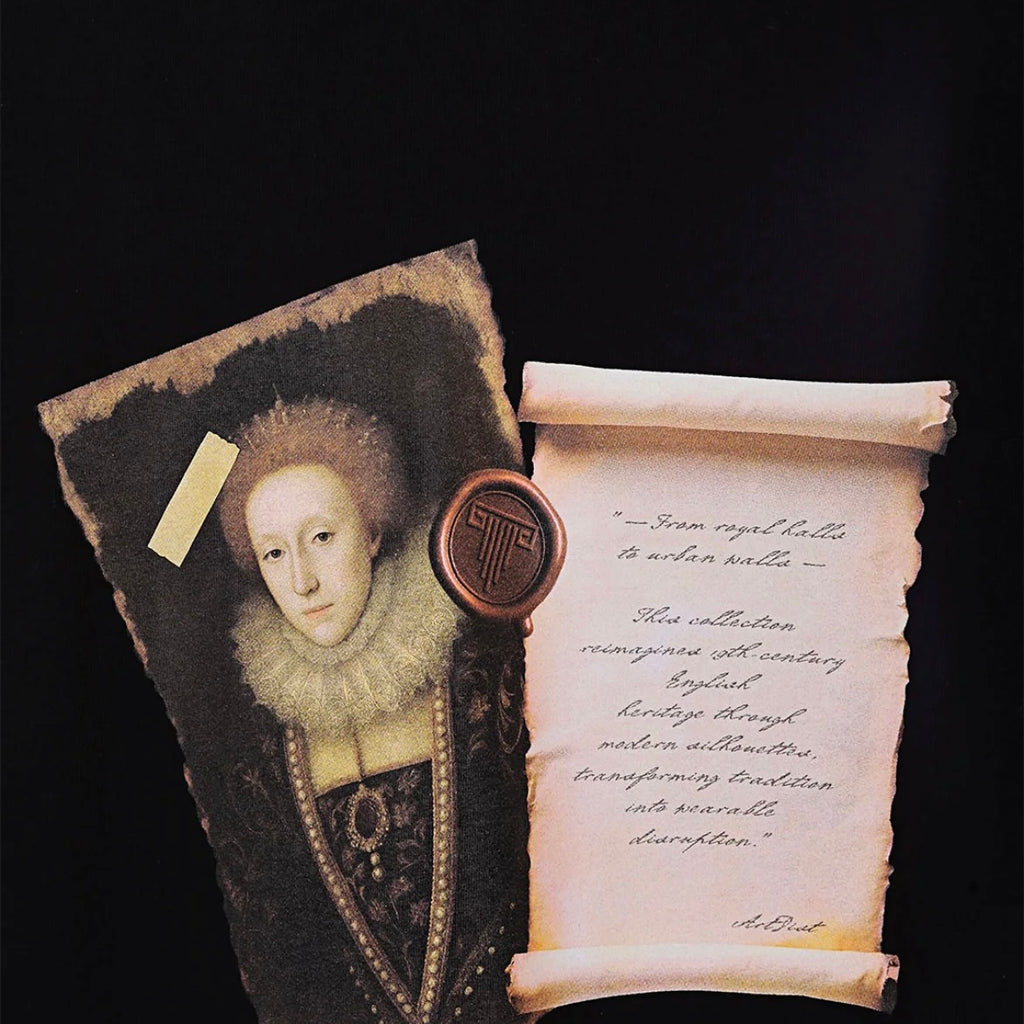 "—From royal halls
to urban walls —
This collection
reimagines 19th-century
English
heritage through
modern silhouettes,
transforming tradition
into wearable
disruption."
ArtDist